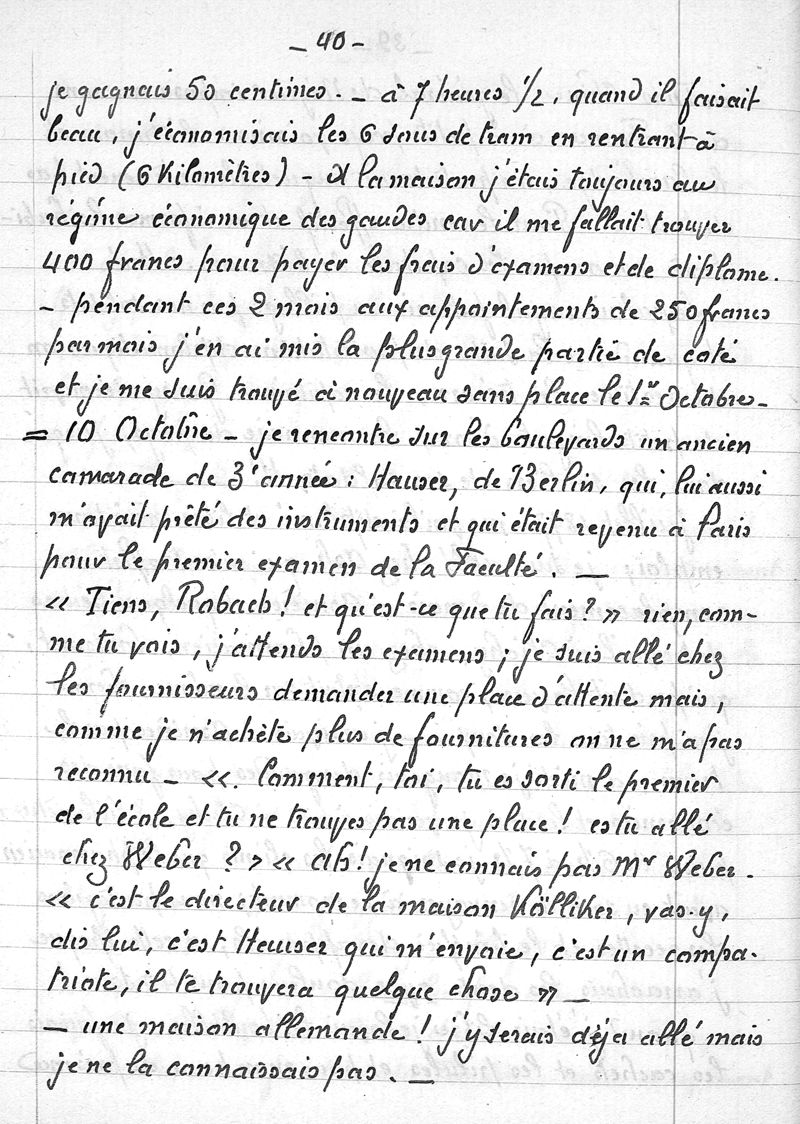 - 40 -
je gagnais 50 centimes. - à 7 heures 1/2, quand il faisait
beau, j'économisais les 6 sous de tram en rentrant à
pied (6 Kilomètres) - A la maison j'étais toujours au
régime économique des gaudes car il me fallait trouver
400 francs pour payer les frais d'examens et de diplome.
- pendant ces 2 mois aux appointements de 250 francs
par mois j'en ai mis la plus grande partie de coté
et je me suis trouvé à nouveau sans place le 1er Octobre -
= 10 Octobre - je rencontre sur les boulevards un ancien
camarade de 3e année : Hauser, de Berlin, qui, lui aussi
m'avait prêté des instruments et qui était revenu à Paris
pour le premier examen de la Faculté. -
« Tiens, Robach ! et qu'est-ce que tu fais ? » rien, com-
me tu vois, j'attends les examens ; je suis allé chez
les fournisseurs demander une place d'attente mais,
comme je n'achète plus de fournitures on ne m'a pas
reconnu - «. Comment, toi, tu es sorti le premier
de l'école et tu ne trouves pas une place ! es tu allé
chez Weber ? » « Ah ! je ne connais pas Mr Weber.
« c'est le directeur de la maison Kölliker, vas-y,
dis lui, c'est Hauser qui m'envoie, c'est un compa-
triote, il te trouvera quelque chose » -
- une maison allemande ! j'y serais déja allé mais
je ne la connaissais pas. -